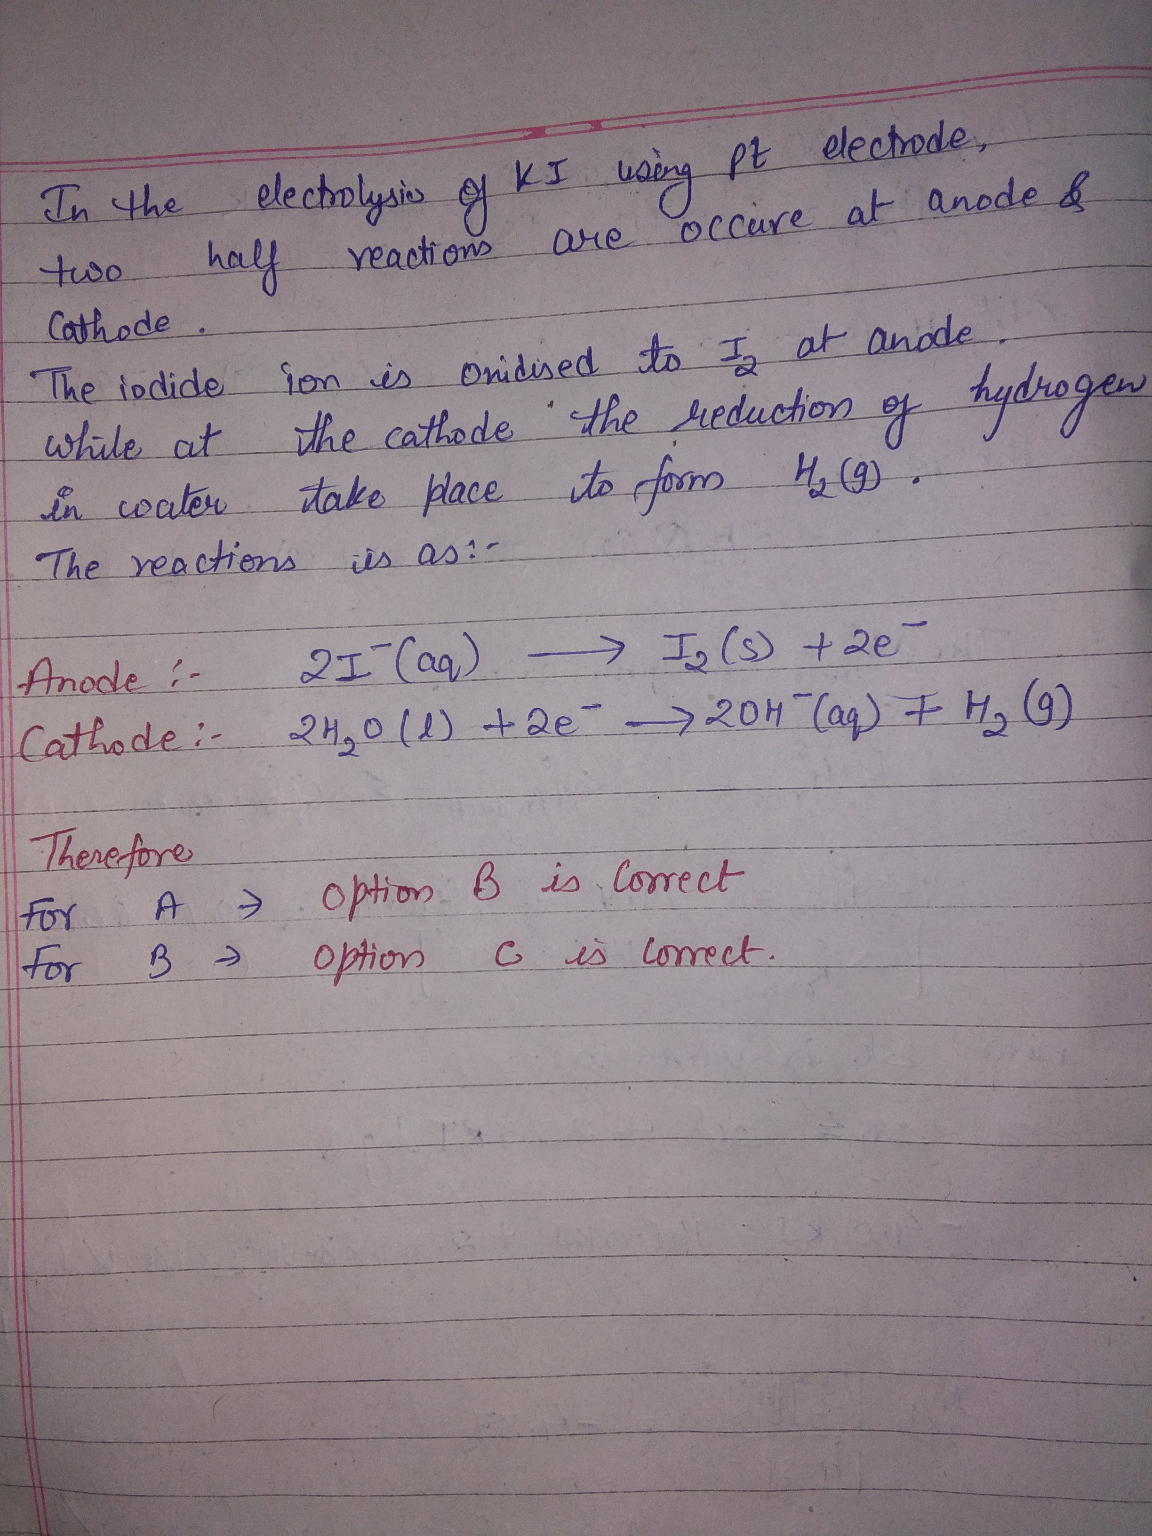 In the electrolysis of KI using pt electrode,
two half reactions are occure at anode &
Cathode.
The iodide ion is onidised to I₂ at anode.
while at the cathode the reduction of hydrogen
in water take place to form H₂(g).
The reactions is as:-
Anode :- 2I⁻(aq) → I₂(s) + 2e⁻
Cathode :- 2H₂O(l) + 2e⁻ → 2OH⁻(aq) + H₂(g)
Therefore
For A → option B is Correct
For B → option C is Correct.